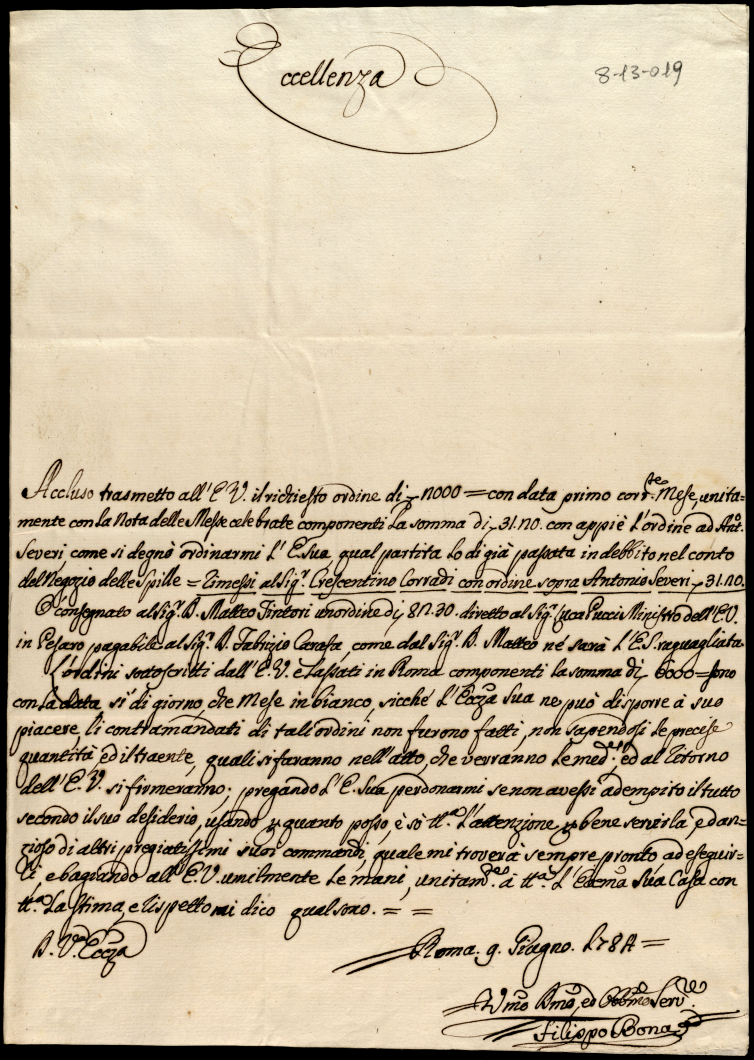 Eccellenza
8-13-019
Accluso trasmetto all'E.V. il richiesto ordine di 1000 = con data primo corr.te Mese, unita-
mente con la Nota delle Messe celebrate componenti la somma di 31.20. con appiè l'ordine ad Ant.o
Severi come si degnò ordinarmi L'E. Sua qual partita lo di già passata in debbito nel conto
del Negozio delle Spille = Rimessi al Sig.r Crescentino Corradi con ordine sopra Antonio Severi 31.20.
O consegnato al Sig.r D. Matteo Tintori un ordine di 30. diretto al Sig.r Luca Pucci Ministro dell'E.V.
in Pesaro pagabile al Sig.r D. Fabrizio Carafa, come dal Sig.r D. Matteo né sarà L'E.S. raguagliata.
L'ordini sottoscritti dall'E.V. e lassati in Roma componenti la somma di 6000 = sono
con la data sì di giorno, che Mese in bianco, sicché L'Ecc.za Sua ne può disporre à suo
piacere, li contramandati di tali ordini non furono fatti, non sapendosi le precise
quantità ed il traente, quali si faranno nell'atto, che verranno le med.me ed al Ritorno
dell'E.V. si firmeranno; pregando L'E. Sua perdonarmi se non avessi adempito il tutto
secondo il suo desiderio, usando p quanto posso, e sò tt.a L'attenzione p bene servirla è dan-
zioso di altri pregiatissimi suoi commandi, quale mi troverà sempre pronto ad eseguir-
li e bagiando all'E.V. umilmente le mani, unitam.te à tt.a L'Ecc.ma Sua Casa con
tt.a La stima, e rispetto mi dico qual sono. = =
D. V.a Ecc.za
Roma. 9. Giugno. 1784 =
Um.o D.mo, ed Obb.mo Serv.re
Filippo Bona